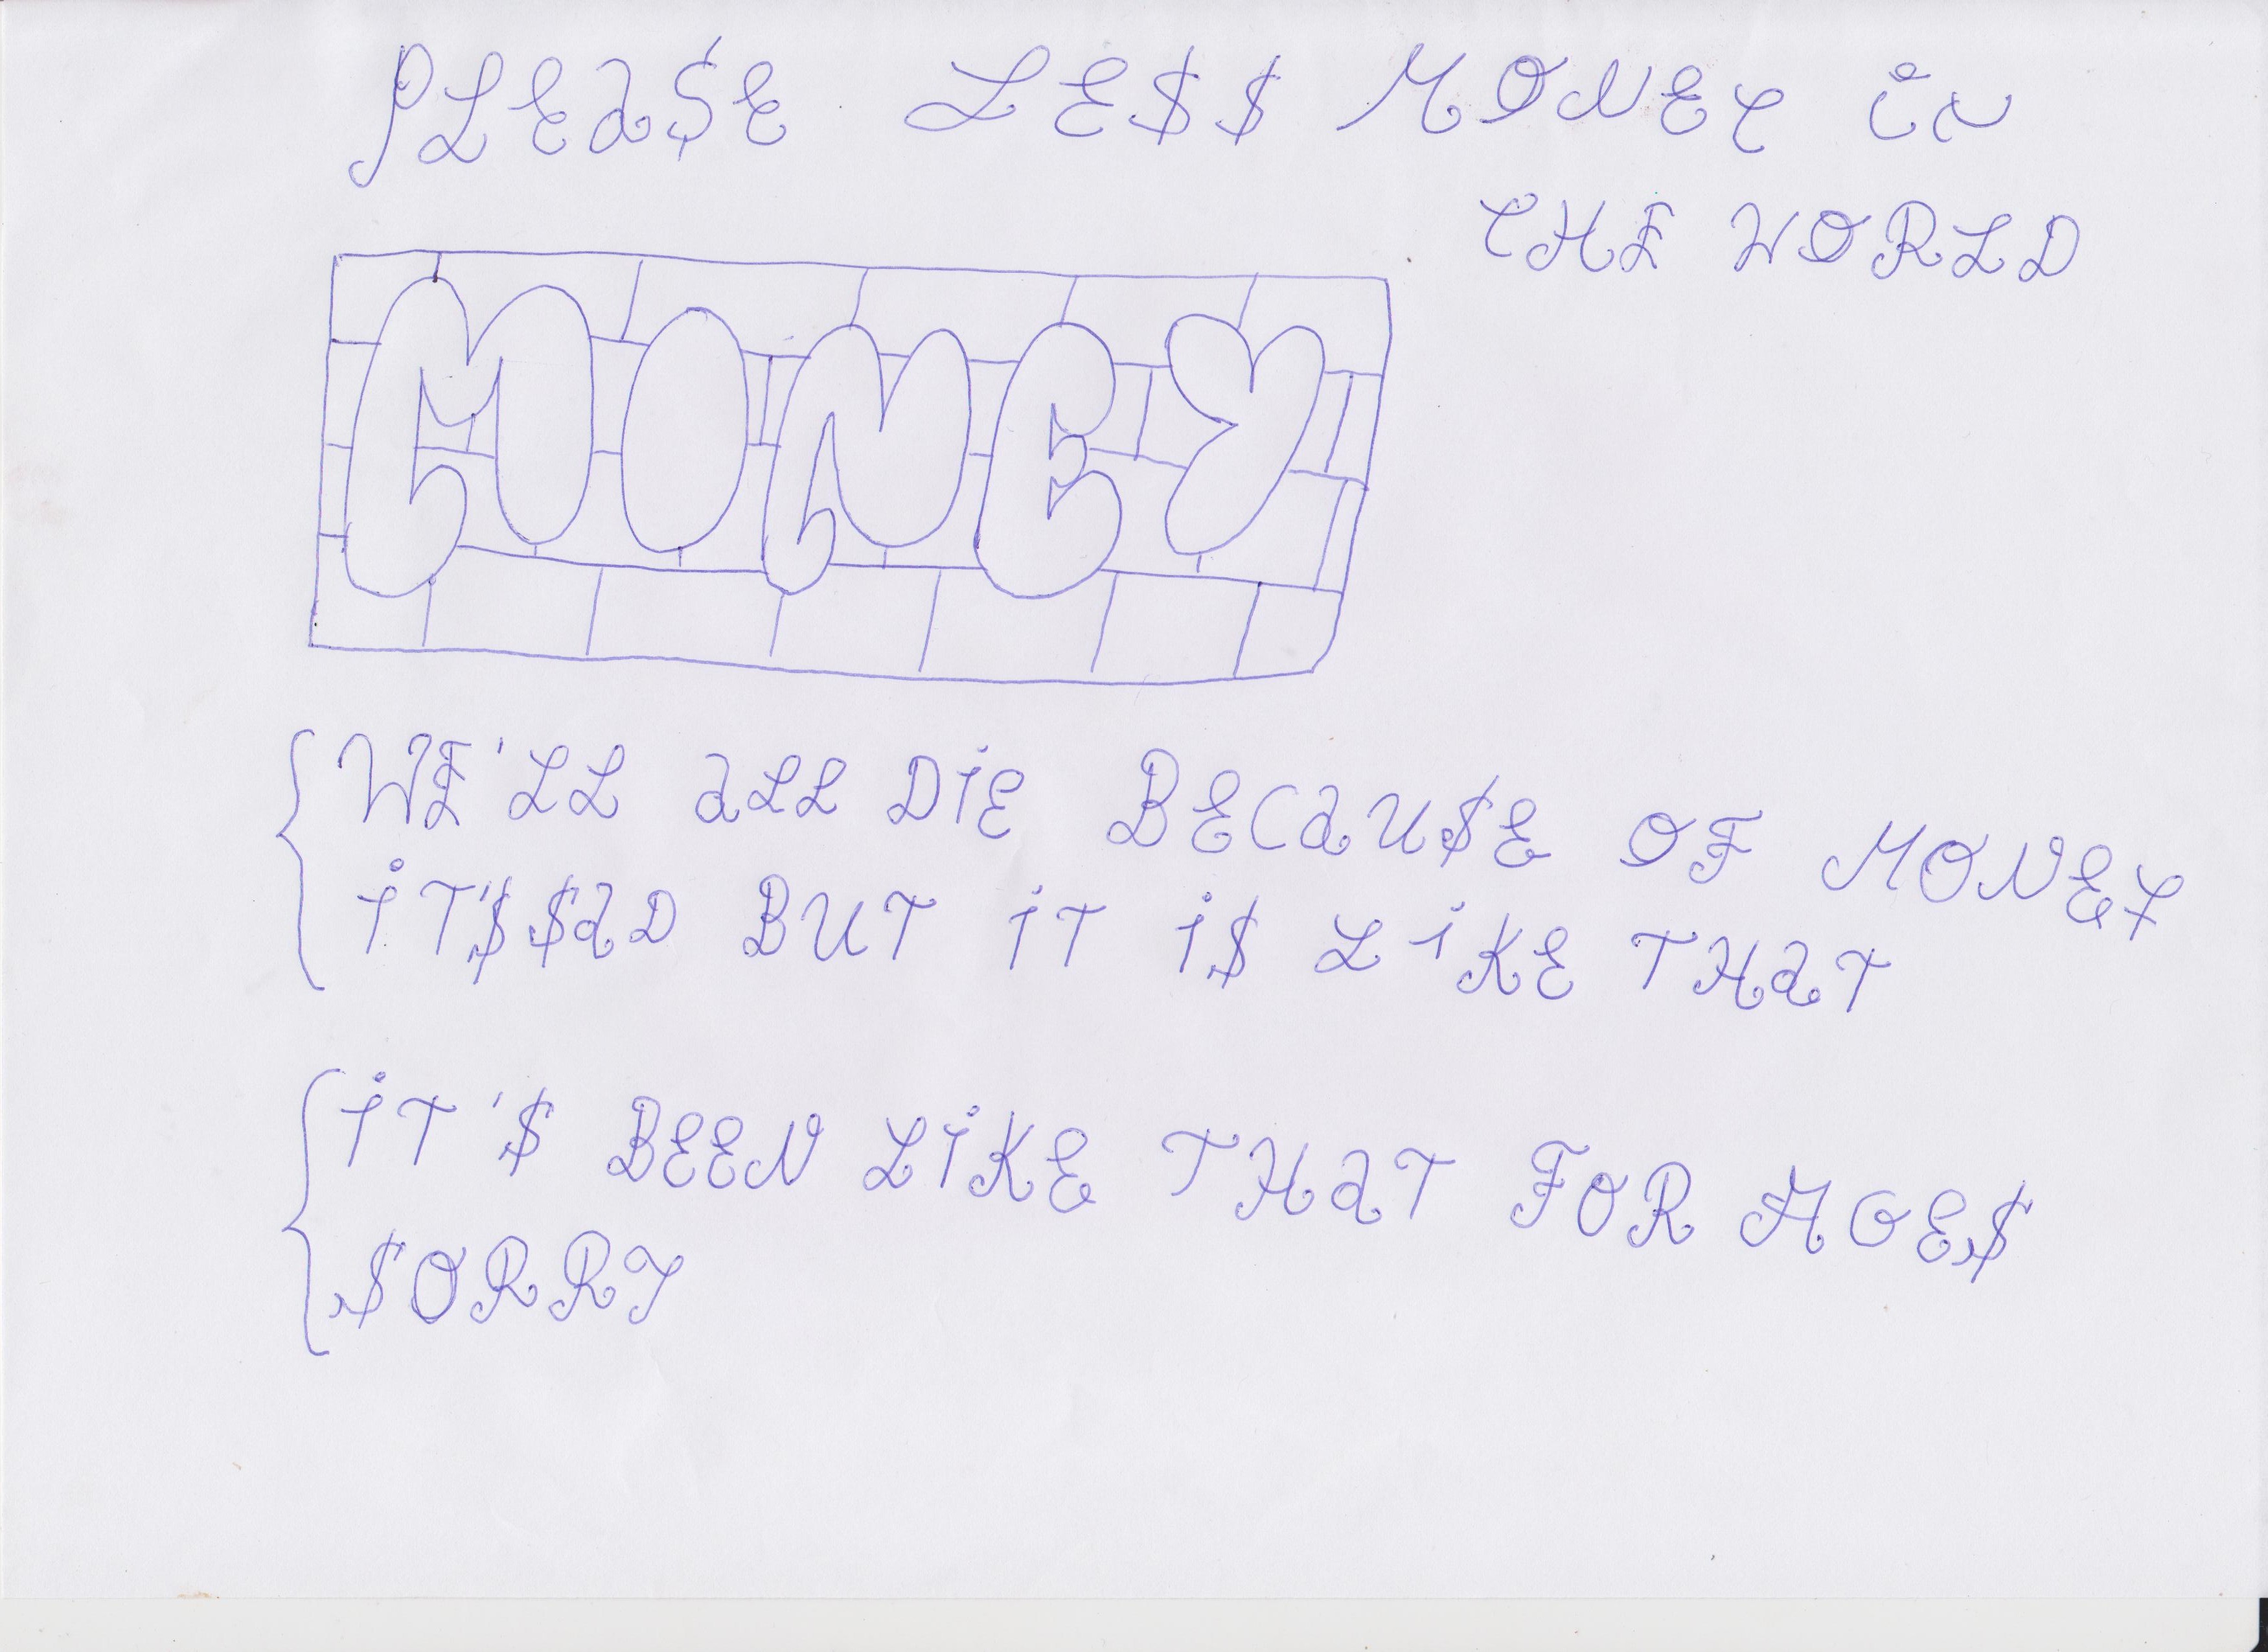 PLEA$E LE$$ MONEY iN
THE WORLD
MONEY
WE'LL aLL DiE BECaU$E OF MONEY
iT'$ $aD BUT iT i$ LiKE THaT
iT'$ BEEN LiKE THaT FOR AGE$
$ORRY